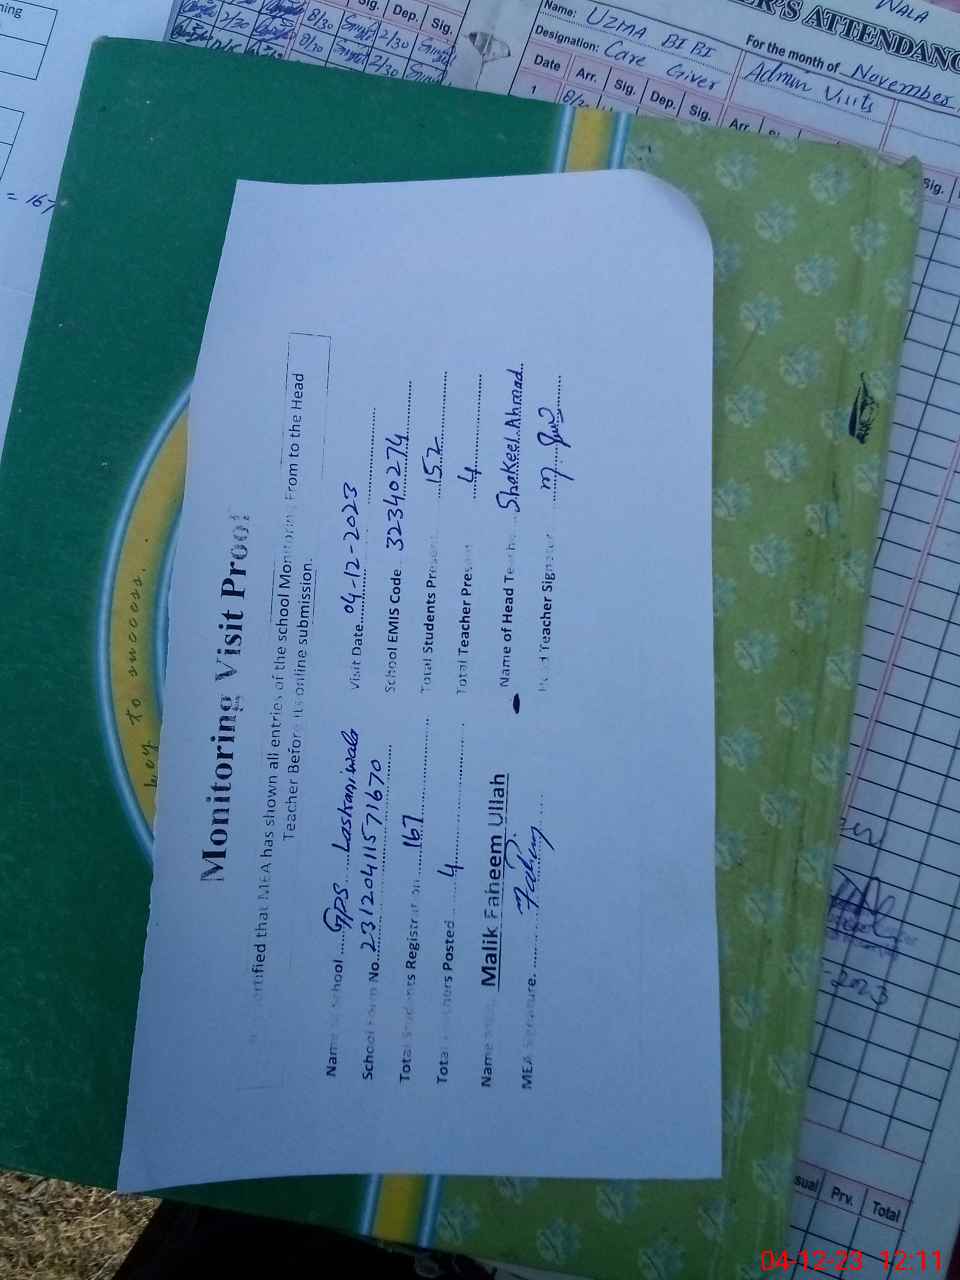 Monitoring Visit Proof
certified that MEA has shown all entries of the school Monitoring From to the Head
Teacher Before its online submission.
Name of School ...... GPS Laskaniwala Visit Date 04-12-2023
School Form No. 23120411571670 School EMIS Code 32340274
Total Students Registration 167 Total Students Present 152
Total Teachers Posted 4 Total Teacher Present 4
Name Malik Faheem Ullah Name of Head Teacher Shakeel Ahmad
MEA Signature. Faheem Head Teacher Signature
key to success.
= 167
WALA
ER'S ATTENDANC
Name: UZMA BIBI For the month of November
Designation: Care Giver Admin Visits
Date Arr. Sig. Dep. Sig. Arr.
1 8/30
Sig. Dep. Sig.
2/30 8/30 2/30
8/30 2/30
Sig.
2023
sual Prv. Total
04-12-23 12:11